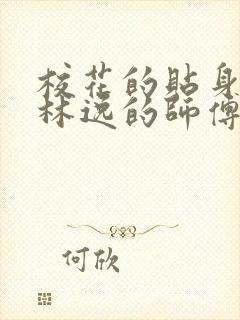 校花的貼身
林逸的師傅
何欣